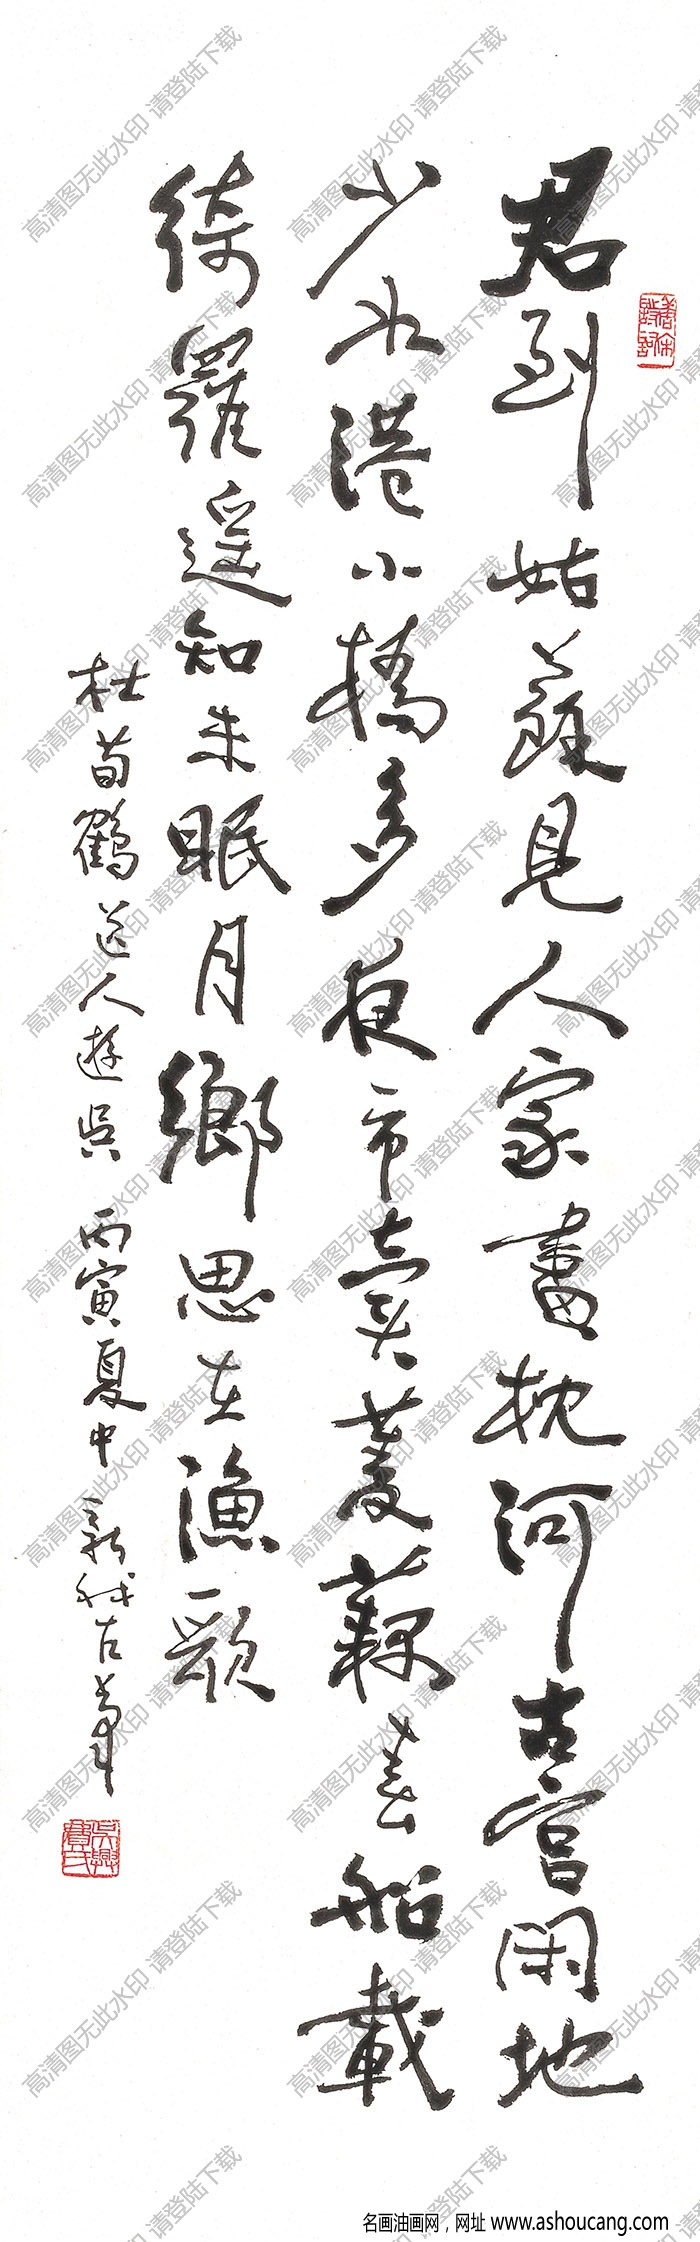 君到姑蘇見人家盡枕河古宫閑地
少水港小橋多夜市賣菱藕春船載
綺羅遥知未眠月鄉思在漁歌
杜荀鶴送人遊吳 丙寅夏中 新我左筆
吳興費氏
高清图无此水印 请登陆下载
名画油画网，网址 www.ashoucang.com